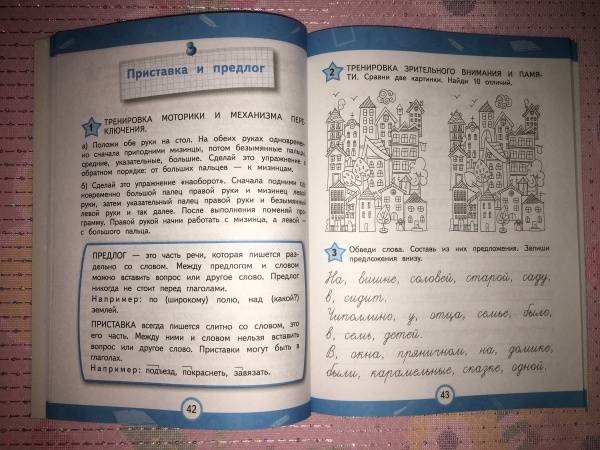 Приставка и предлог
1 ТРЕНИРОВКА МОТОРИКИ И МЕХАНИЗМА ПЕРЕ-
КЛЮЧЕНИЯ.
а) Положи обе руки на стол. На обеих руках одновремен-
но сначала приподними мизинцы, потом безымянные пальцы,
средние, указательные, большие. Сделай это упражнение в
обратном порядке: от больших пальцев — к мизинцам.
б) Сделай это упражнение «наоборот». Сначала подними од-
новременно большой палец правой руки и мизинец левой
руки, затем указательный палец правой руки и безымянный
левой руки и так далее. После выполнения поменяй про-
грамму. Правой рукой начни работать с мизинца, а левой —
с большого пальца.
ПРЕДЛОГ — это часть речи, которая пишется раз-
дельно со словом. Между предлогом и словом
можно вставить вопрос или другое слово. Предлог
никогда не стоит перед глаголами.
Например: по (широкому) полю, над (какой?)
землей.
ПРИСТАВКА всегда пишется слитно со словом, это
его часть. Между ними и словом нельзя вставить
вопрос или другое слово. Приставки могут быть в
глаголах.
Например: подъезд, покраснеть, завязать.
42
2 ТРЕНИРОВКА ЗРИТЕЛЬНОГО ВНИМАНИЯ И ПАМЯ-
ТИ. Сравни две картинки. Найди 10 отличий.
3 Обведи слова. Составь из них предложения. Запиши
предложения внизу.
На, вишне, соловей, старой, саду,
в, сидит.
Чиполлино, у, отца, семье, было,
в, семь, детей.
В, окна, пряничном, на, домике,
были, карамельные, сказке, одной.
43